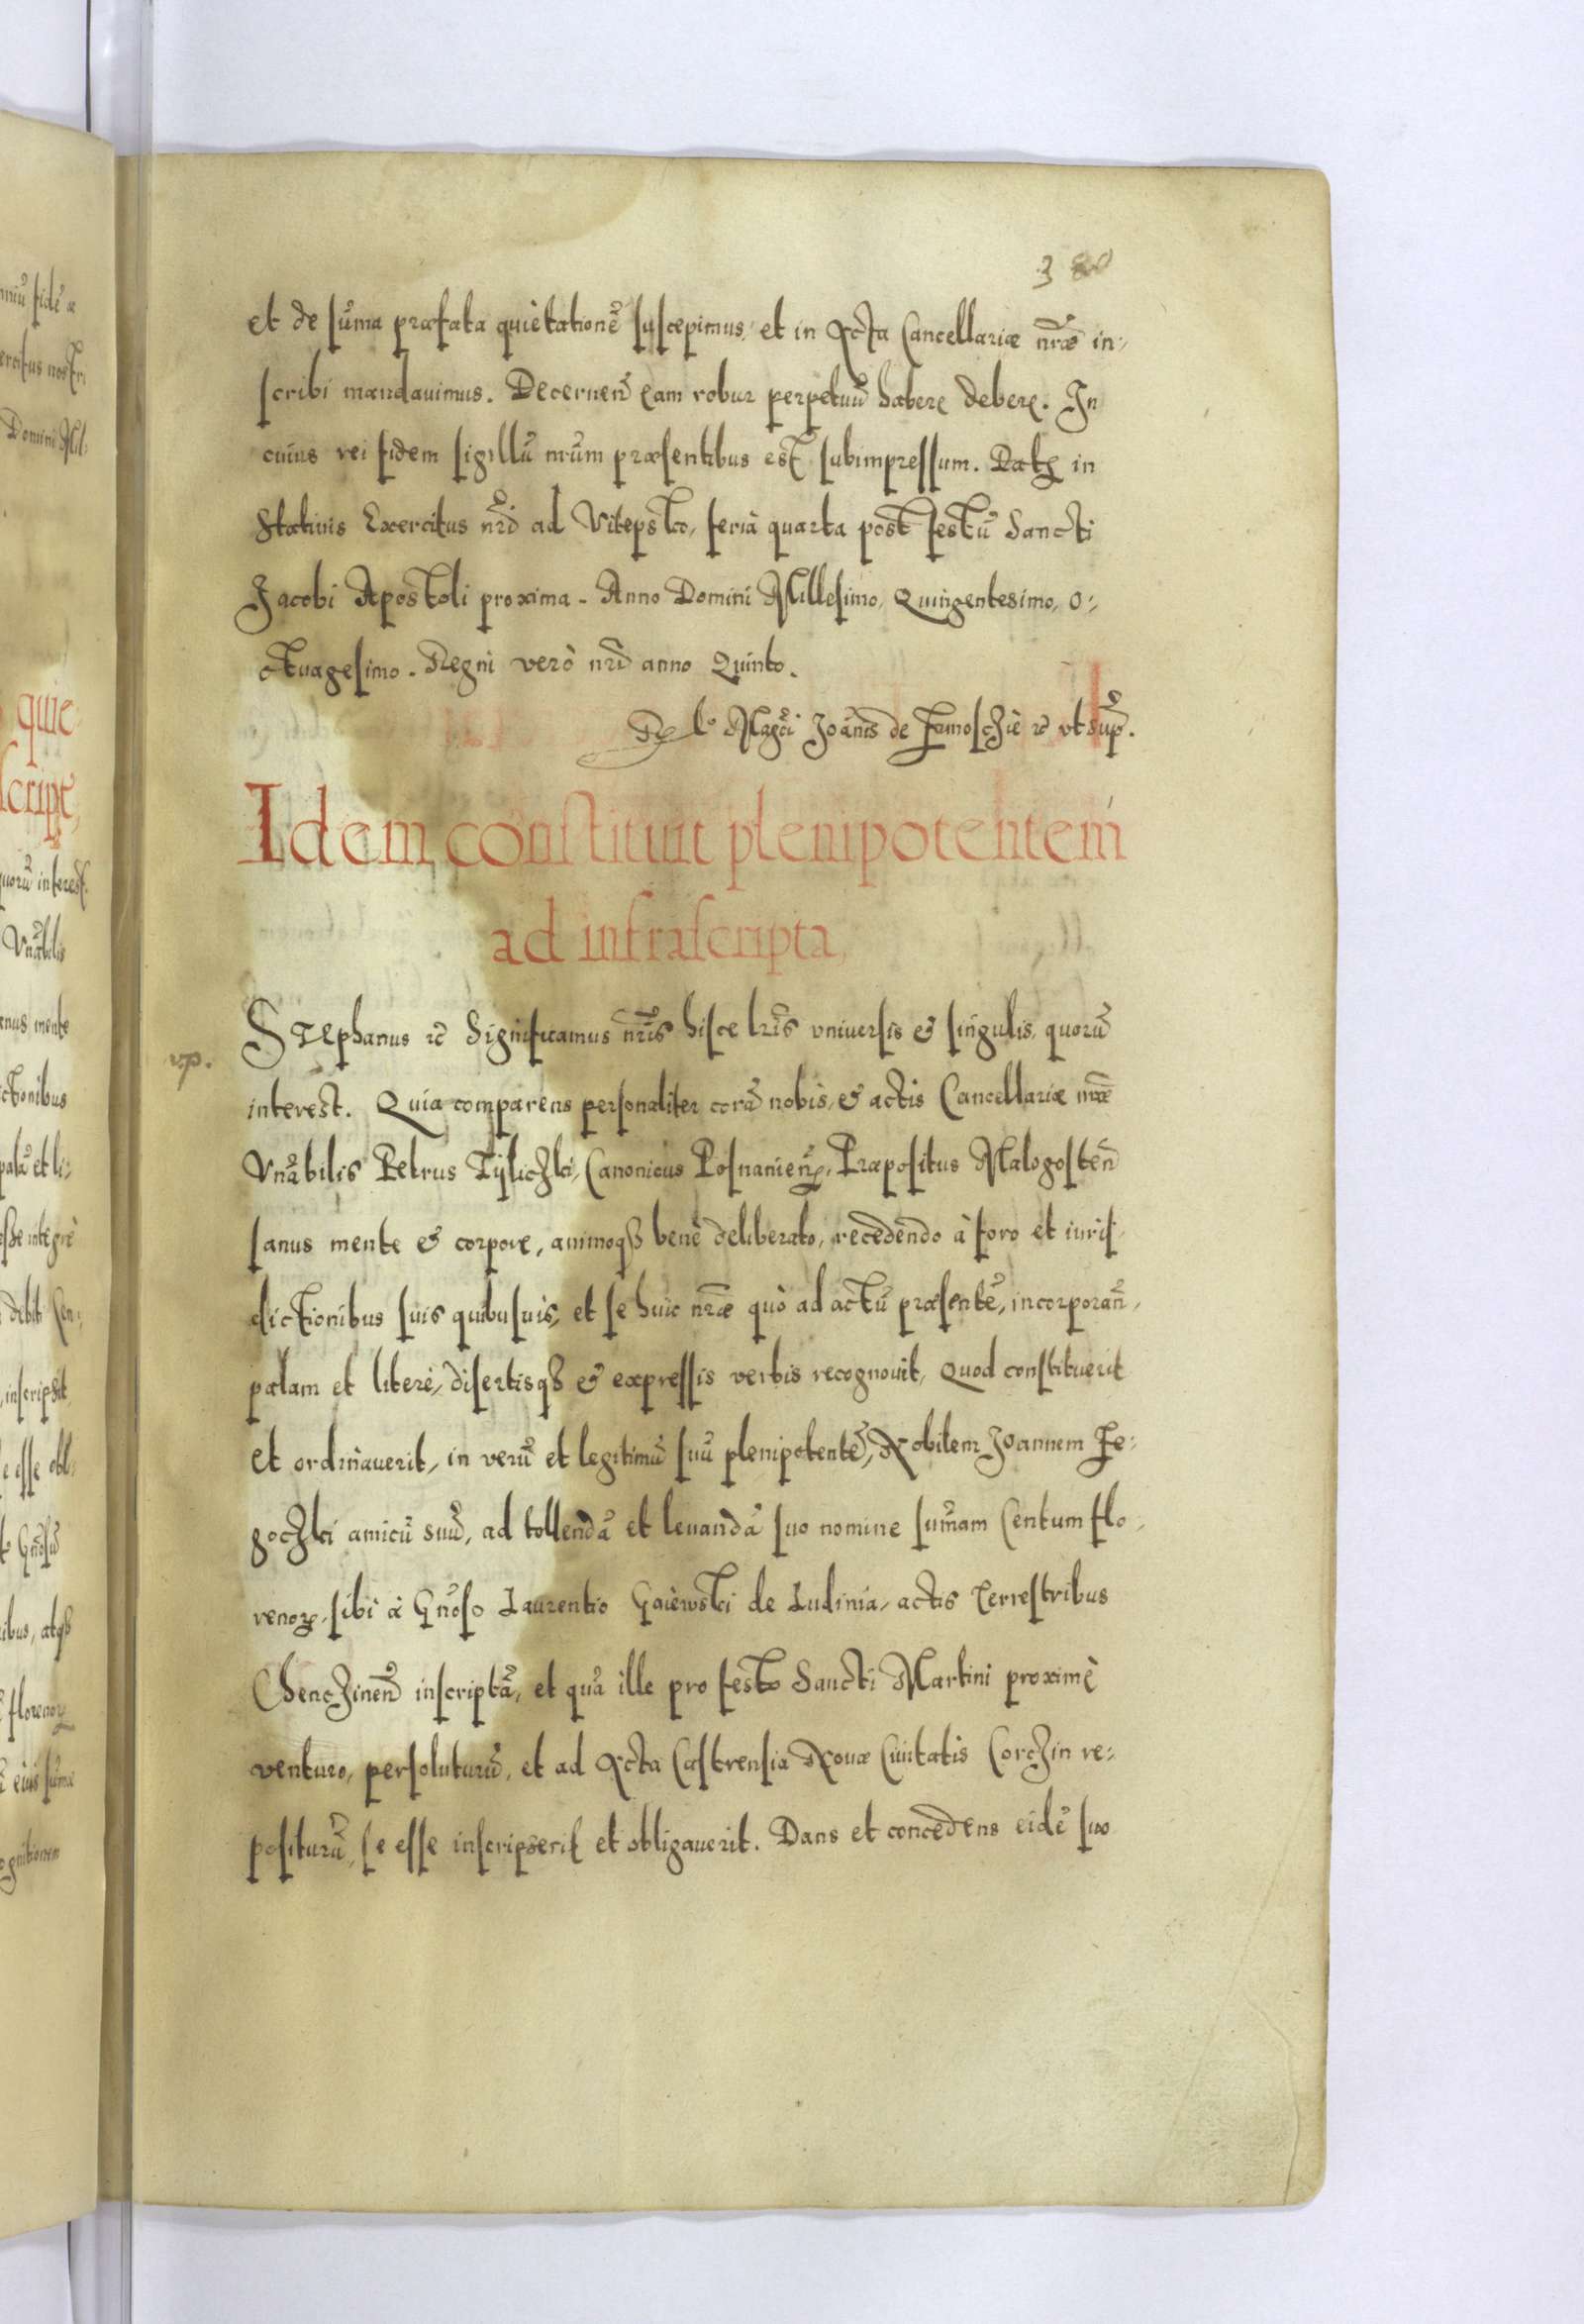 380
et de sum̃a præfata quietationẽ suscepimus, et in Acta Cancellariæ nr̃æ in-
scribi mandauimus. Decernen̄ eam robur perpetuũ habere debere. In
cuius rei fidem sigillũ nr̃um præsentibus est subimpressum. Datꝭ in
Statiuis Exercitus nr̃i ad Vitepsko, feria quarta post festũ Sancti
Jacobi Apostoli proxima. Anno Domini Millesimo, Quingentesimo, o-
ctuagesimo. Regni verò nr̃i anno Quinto.
Rel.º Mag̃ci Joãnis de Zamoschie ꝛc vt sup̃.
Idem constituit plenipotentem
ad infrascripta,
vp.
STEphanus ꝛc Significamus nr̃is hisce lr̃is vniuersis & singulis, quorũ
interest. Quia comparens personaliter corã nobis, & actis Cancellariæ nr̃æ
Vnãbilis Petrus Tÿliczki, Canonicus Posnanien̄, Præpositus Malogosten̄
sanus mente & corpore, animoqꝫ bene deliberato, recedendo à foro et iuris-
dictionibus suis quibusuis, et se huic nr̃æ quò ad actũ præsentẽ, incorporan̄,
palam et liberè, disertisqꝫ & expressis verbis recognouit, Quod constituerit
et ordinauerit, in verũ et legitimũ suũ plenipotentẽ, Nobilem Joannem Ze-
goczki amicũ suũ, ad tollendã et leuandã suo nomine sum̃am Centum flo-
renoꝝ, sibi à Gñoso Laurentio Gaiewski de Ludinia, actis Terrestribus
Chenczinen̄ inscriptã, et quã ille pro festo Sancti Martini proximè
venturo, persoluturũ, et ad Acta Castrensia Nouæ Ciuitatis Corczin re-
positurũ, se esse inscripserit et obligauerit. Dans et concedens eidẽ suo